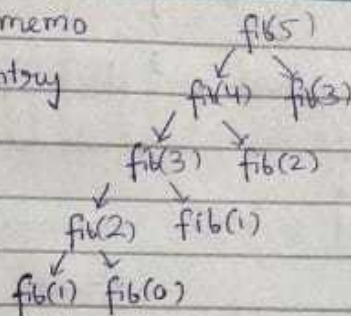 memo fib(5)
ntry fib(4) fib(3)
fib(3) fib(2)
fib(2) fib(1)
fib(1) fib(0)